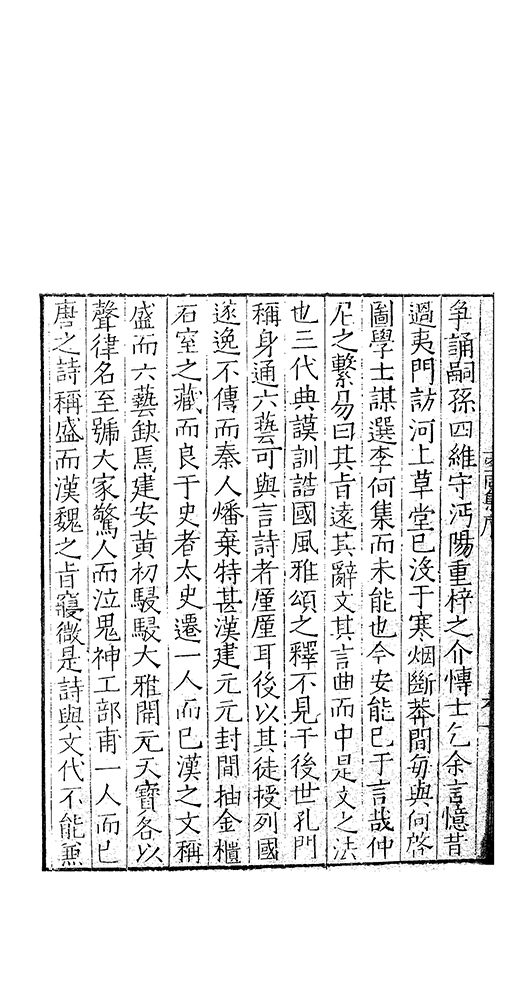 争誦嗣孫四維守沔陽重梓之介慱士乞余言憶昔
過夷門訪河上草堂已沒于寒烟斷莽間每與何啓
圖學士謀選李何集而未能也今安能已于言哉仲
尼之繫易曰其㫖遠其辭文其言曲而中是文之法
也三代典謨訓誥國風雅頌之釋不見于後世孔門
稱身通六藝可與言詩者厪厪耳後以其徒授列國
遂逸不傳而秦人燔棄特甚漢建元元封間抽金櫃
石室之藏而良于史者太史遷一人而已漢之文稱
盛而六藝缺焉建安黃初駸駸大雅開元天寶各以
聲律名至號大家驚人而泣鬼神工部甫一人而已
唐之詩稱盛而漢魏之㫖寖微是詩與文代不能兼